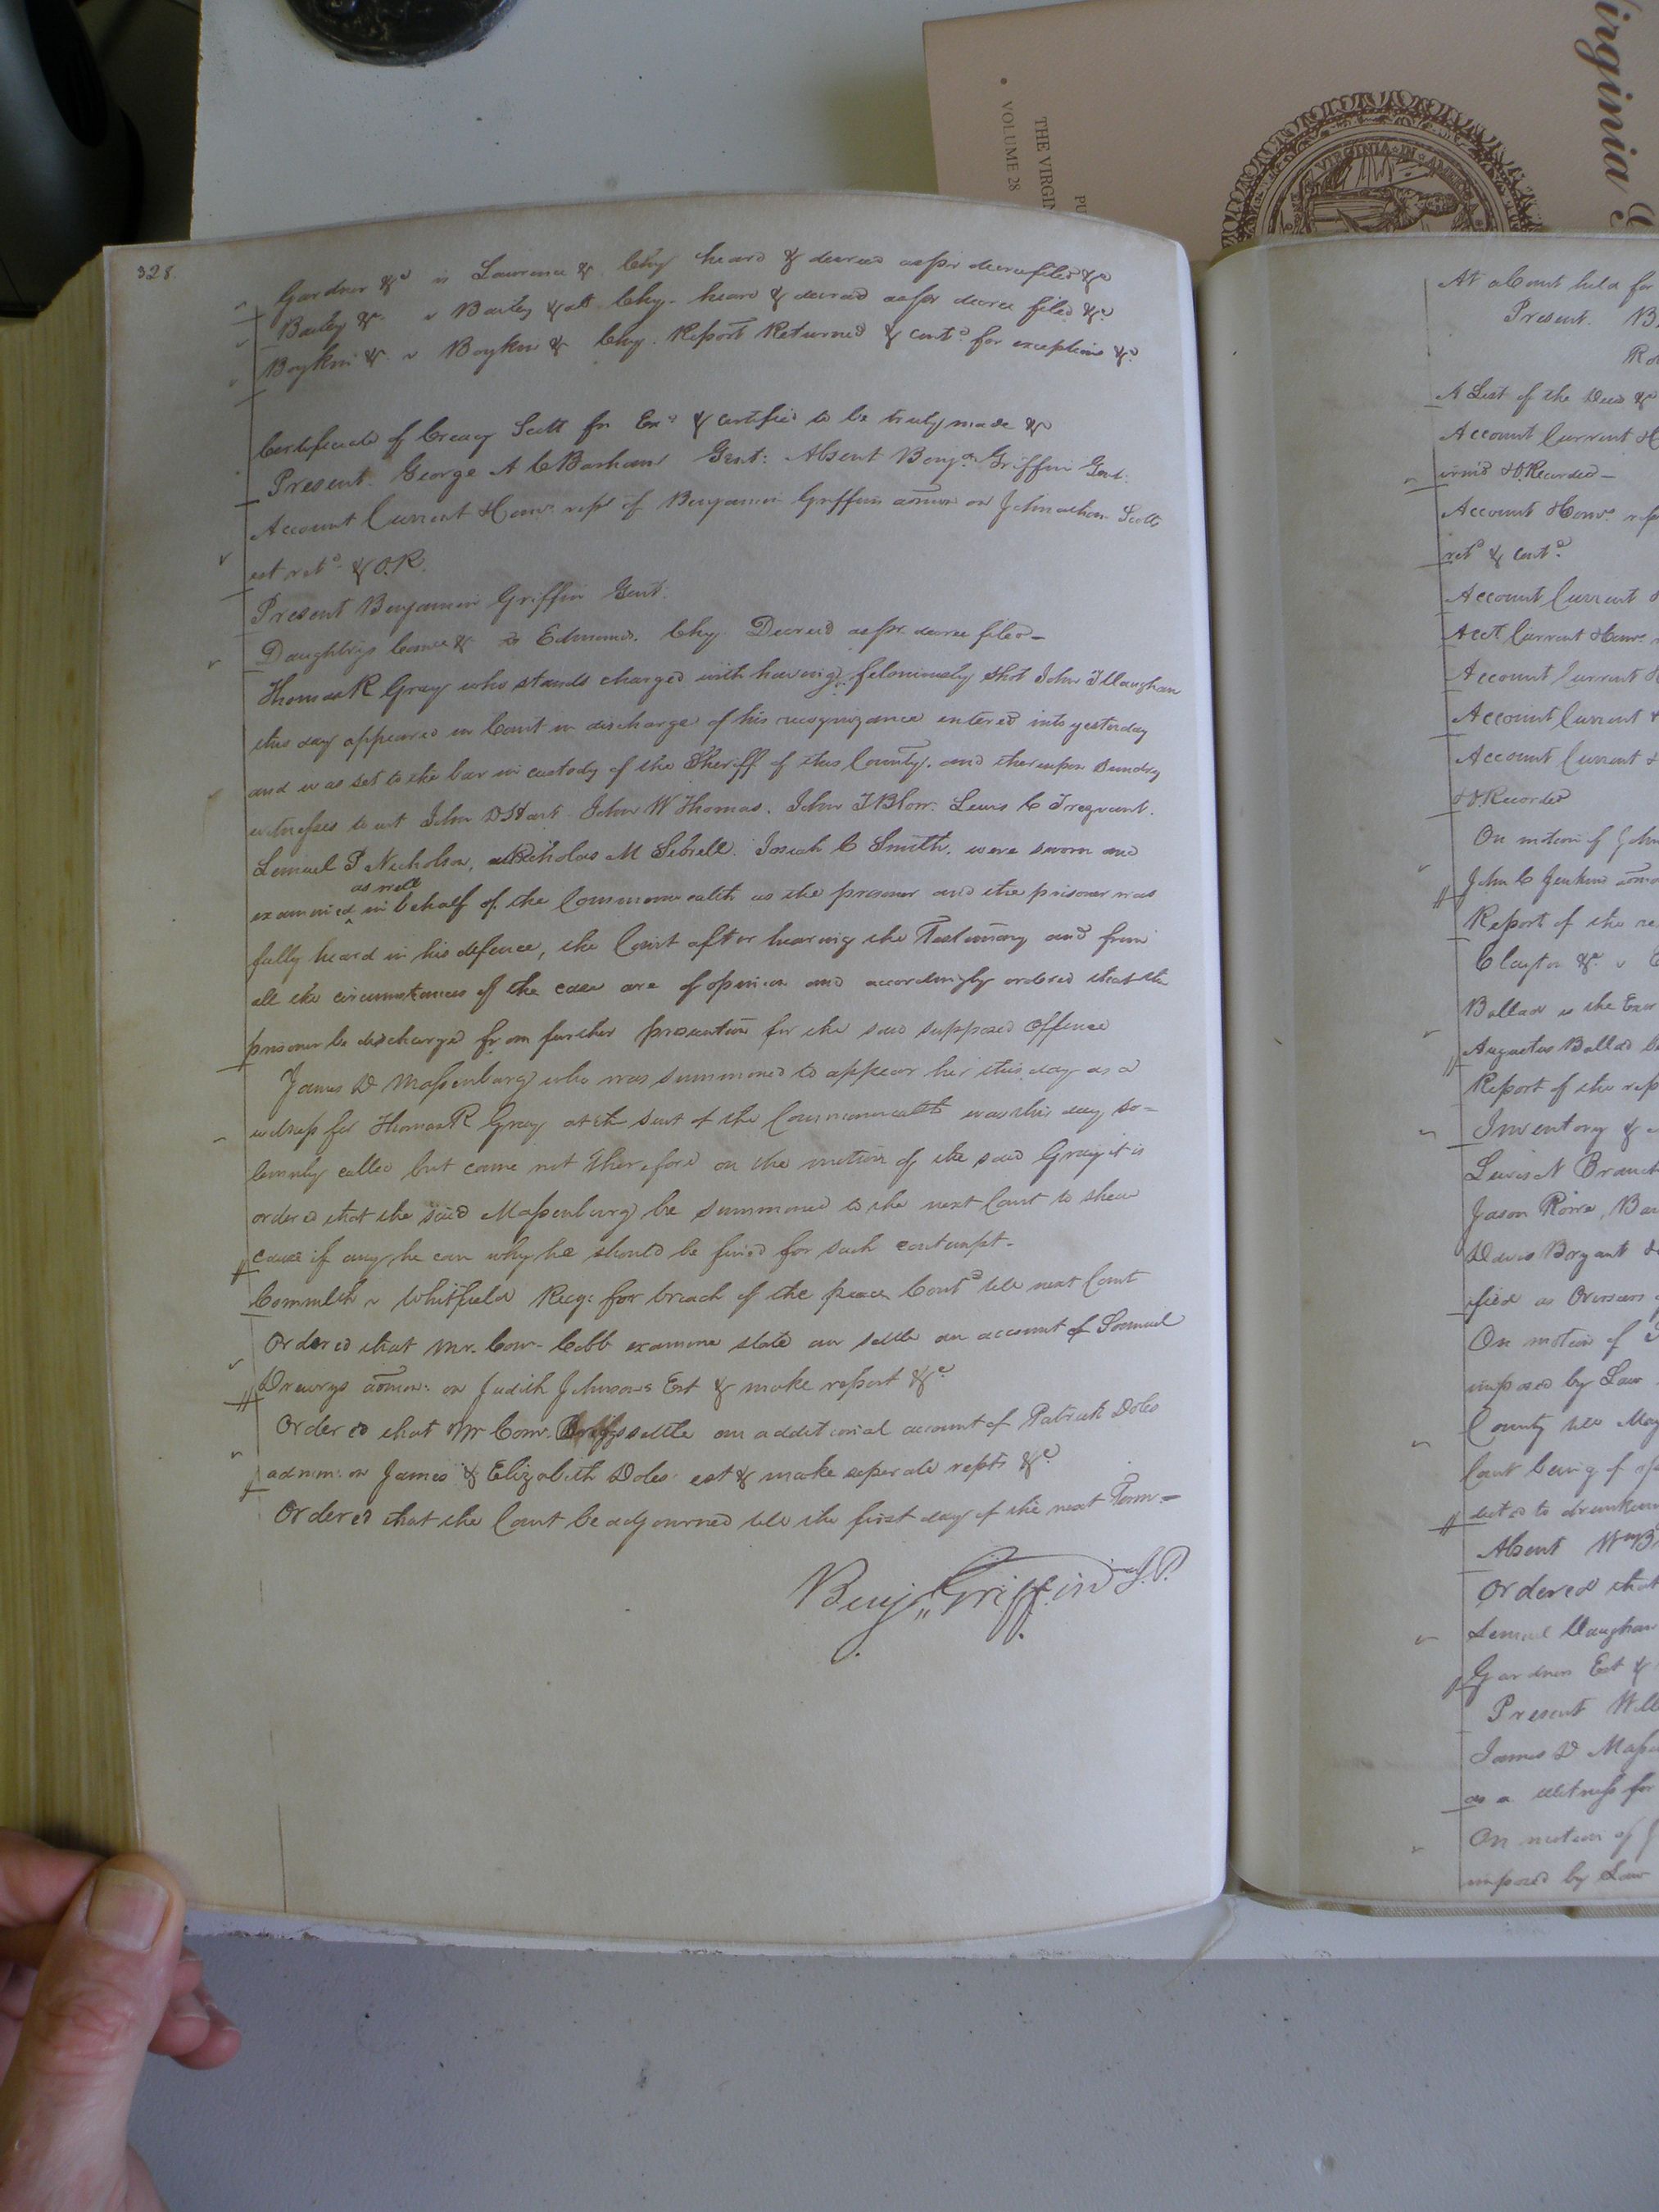 irginia
THE VIRGIN
VOLUME 28
PU
VIRGINIA IN A
328.
Gardner &c vs Lawrence & Chy heard & decreed as pr decree filed &c
Bailey &c. v Bailey & als Chy. heard & decreed as pr decree filed &c
Boykin &c. v Boykin & Chy. Report Returned & contd. for exceptions &c
Certificate of Creacy Scott fn Exd & certified to be truly made &c
Present George A C Barham Gent: Absent Benja. Griffin Gent.
Account Current & Comr. rept of Benjamin Griffin admor on Johnathan Scotts
est retd. & O.R.
Present Benjamin Griffin Gent.
Daughtrys & Edmonds. Chy. Decreed as pr. decree filed—
Thomas R Gray who stands charged with having feloniously shot John T Vaughan
this day appeared in Court in discharge of his recognizance entered into yesterday
and was set to the bar in custody of the Sheriff of this County. and thereupon Sundry
witnesses to wit John D Hart John W Thomas. John T Blow. Lewis C Trezvant.
Lemuel P Nicholson, Nicholas M Sebrell. Josiah C Smith. were sworn and
as well
examined in behalf of the Commonwealth as the prisoner and the prisoner was
fully heard in his defence, the Court after hearing the Testimony and from
all the circumstances of the case are of opinion and accordingly ordered that the
prisoner be discharged from further prosecution for the said supposed offence
James D Massenburg who was summoned to appear her this day as a
witness for Thomas R Gray at th suit of the Commonwealth was this day so-
lemnly called but came not Therefore on the motion of the said Gray it is
ordered that the said Massenburg be summoned to the next Court to shew
cause if any he can why he should be fined for such contempt-
Commlth v Whitfield Recg: for breach of the peace Contd till next Court
Ordered that Mr. Com. Cobb examine state an settle an account of Samuel
Drewrys admor: on Judith Johnsons Est & make report &c
Ordered that Mr Comr. settle an additional account of Patrick Doles
admr: on James & Elizabeth Doles est & make seperate repts &c
Ordered that the Court be adjourned till the first day of the next Term=
Benj. Griffin J.P.
At a Court held for
Present. B
Ro
A List of the Deeds &c
Account Current & C
urnd & O.Recorded—
Account & Comr. rep
retd & contd.
Account Current &
Acct Current & Comr.
Account Current &
Account Current &
Account Current &
& O.Recorded
On motion of John
John C Jenkins admor
Report of the re
Clayton &c. v
Ballad vs the Exor
Augustus Ballad
Report of the rep
Inventory &
Lewis N Branch
Jason Rowe, Ba
Davis Bryant &
ified as Overseers
On motion of
imposed by Law
County till May
Court being of op
dicted to drunken
Absent Wm B
Ordered that
Lemuel Vaughan
Gardners Est &
Present Will
James D Masse
as a Witness for
On motion of J
imposed by Law